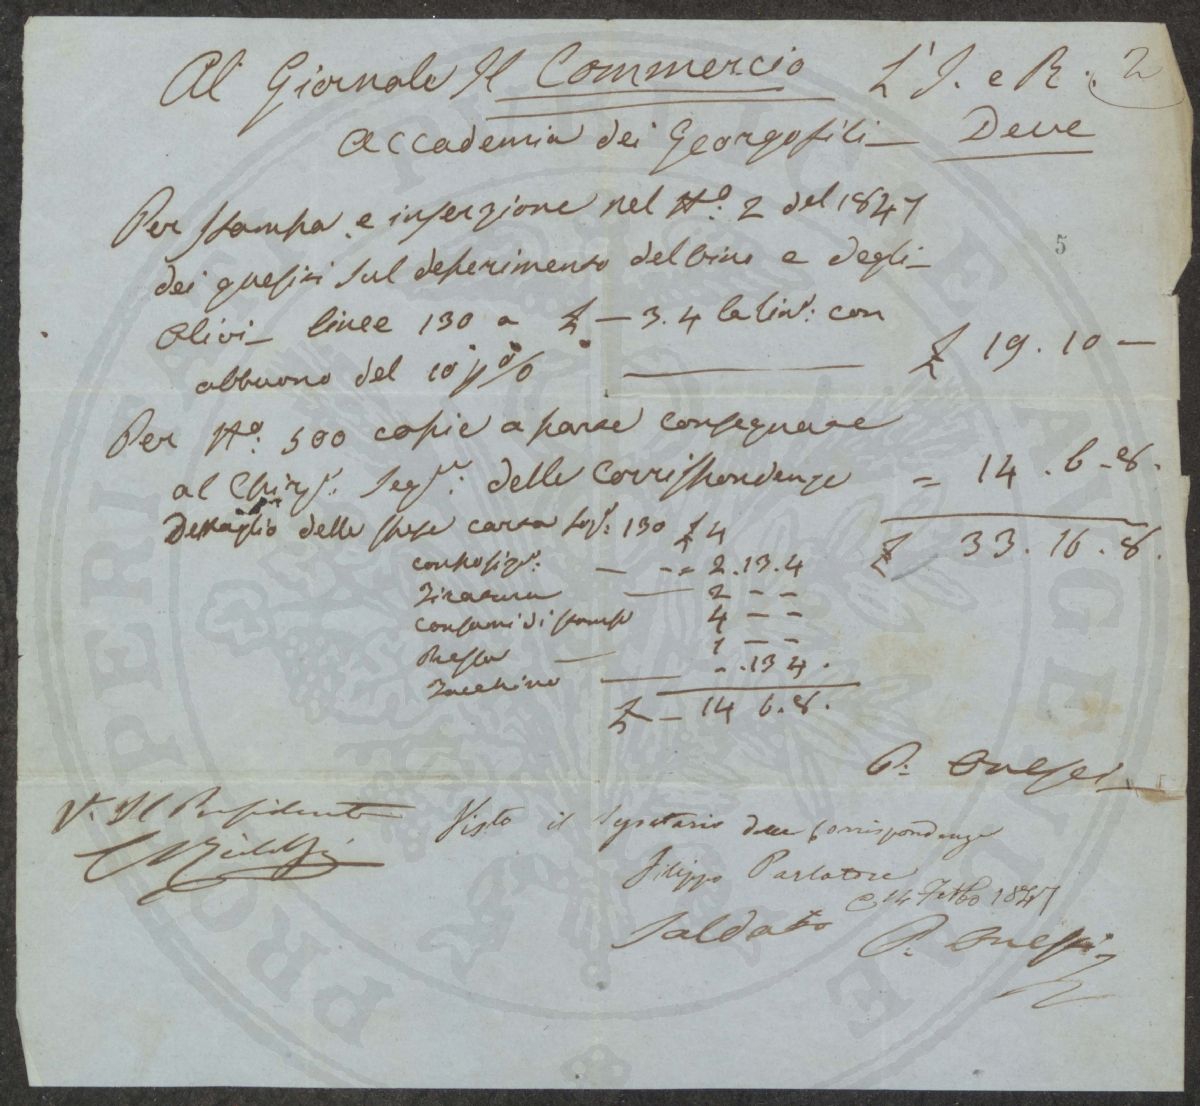 Al Giornale Il Commercio L'I. e R. 2
Accademia dei Georgofili — Deve
Per stampa e inserzione nel N.º 2 del 1847
5
dei quesiti sul deperimento del vino e degli
Olivi — linee 130 a £ — 3.4 la lin.ª con
abbuono del 10 p% £ 19.10 —
Per N.º 500 copie a parte consegnate
al Seg.º delle Corrispondenze = 14.6-8.
Dettaglio delle spese carta 130 £ 4
£ 33.16.8.
composiz.e — -- 2.13.4
Tiratura — 2 - -
Consumi di stampe 4 - -
Pressa — 1 - -
Facchino — -.13 4.
£ — 14 6.8.
V. Il Presidente
Visto il Segretario delle Corrispondenze
Filippo Parlatore
14 1847
Saldato P.
PROPERITATI PUBLICAE AVGENDAE